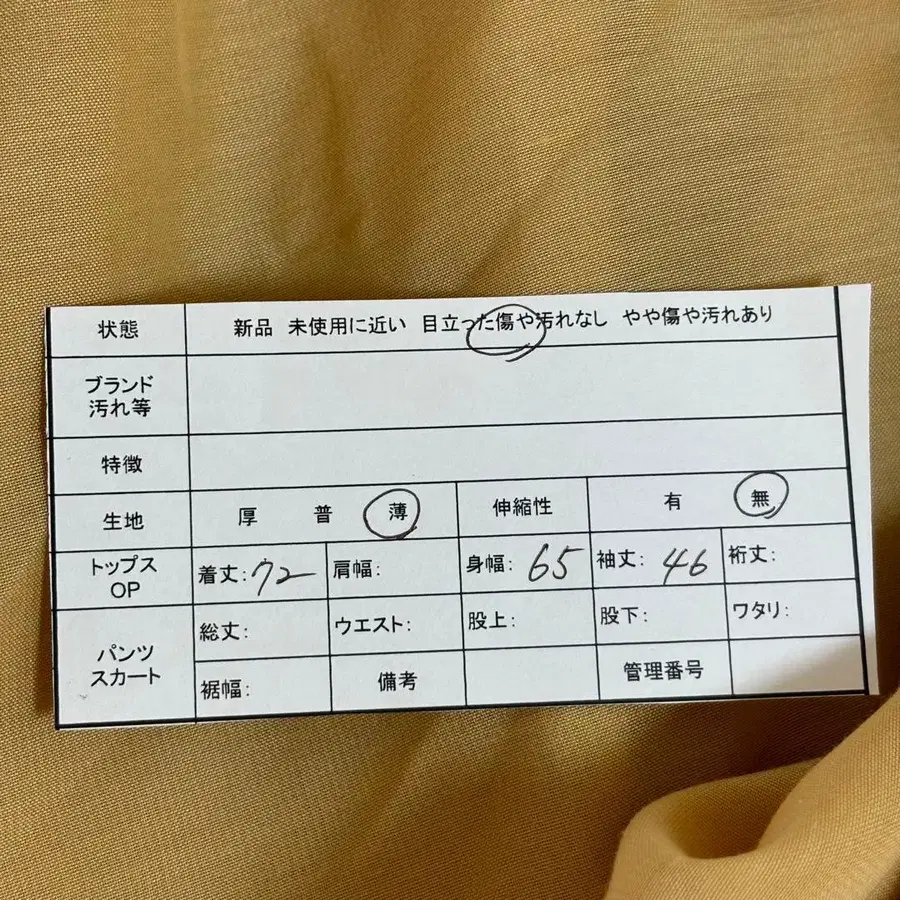 状態 新品 未使用に近い 目立った傷や汚れなし やや傷や汚れあり
ブランド
汚れ等
特徴
生地 厚 普 薄 伸縮性 有 無
トップス
OP
着丈:72 肩幅: 身幅:65 袖丈:46 裄丈:
パンツ
スカート
総丈: ウエスト: 股上: 股下: ワタリ:
裾幅: 備考 管理番号